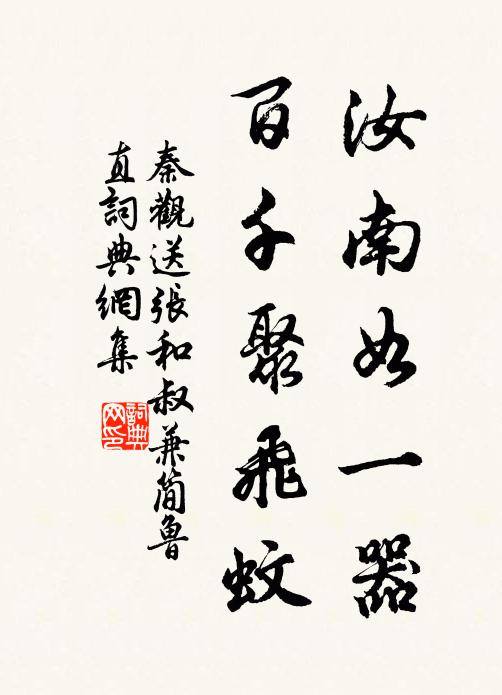 汝南如一器
百千聚飛蚊
秦觀送張和叔兼簡魯
直詞典網集
詞典
网印